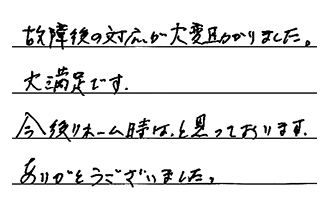 故障後の対応が大変助かりました。
大満足です.
今後リホーム時は、と思っております.
ありがとうございました。